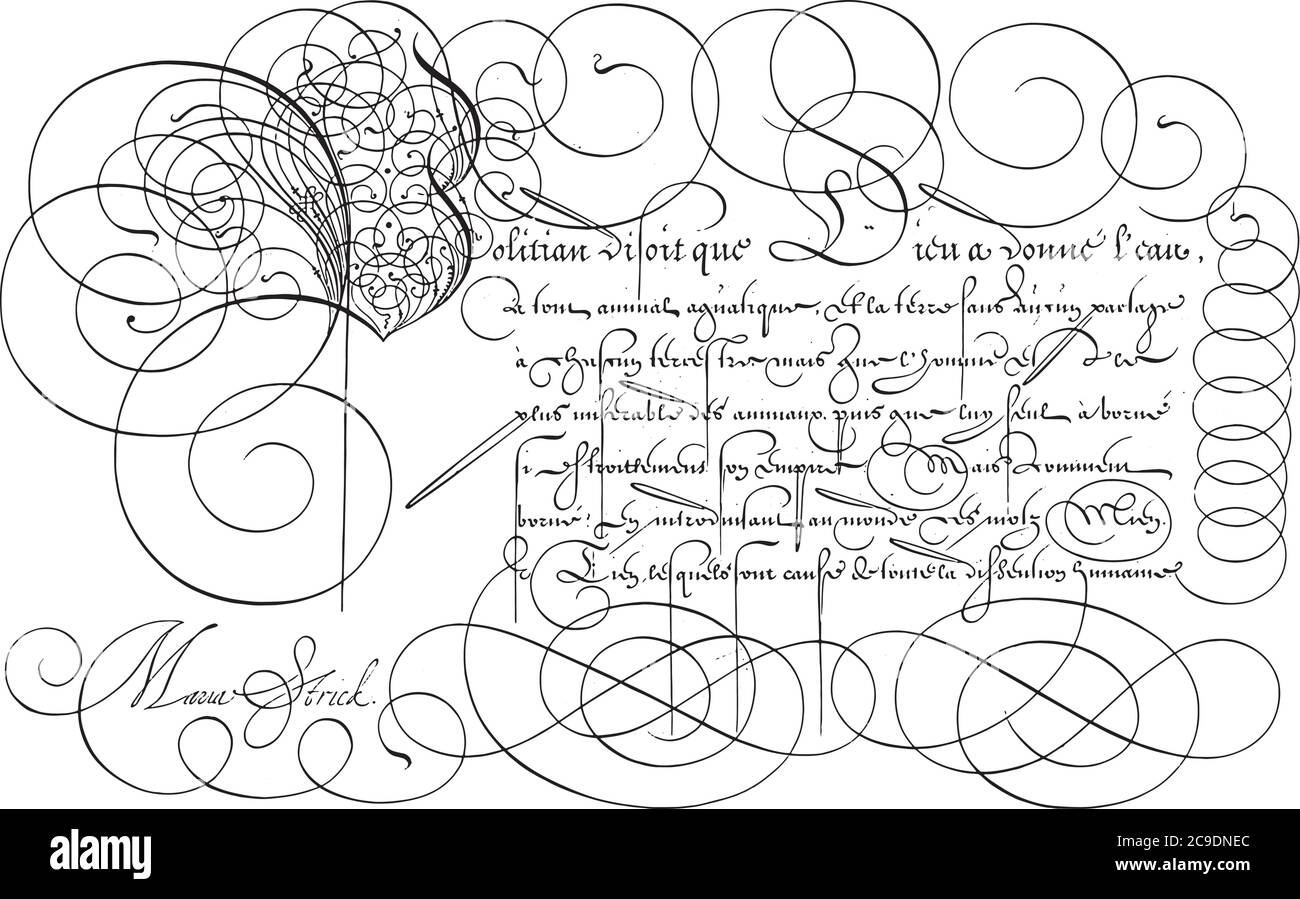 Politian disoit que Dieu a donné l'eau,
A tout animal aquatique, et la terre sans aucun partage
à chascun terrestre, mais que l'homme est le
plus miserable des animaux, puis que luy seul à borné
si estroittement son empire. Mais comment
borné? En introduisant au monde ces motz Mien.
Tien, lesquels sont cause de toute la dissention humaine.
Maria Strick.
alamy
alamy
Image ID: 2C9DNEC
www.alamy.com